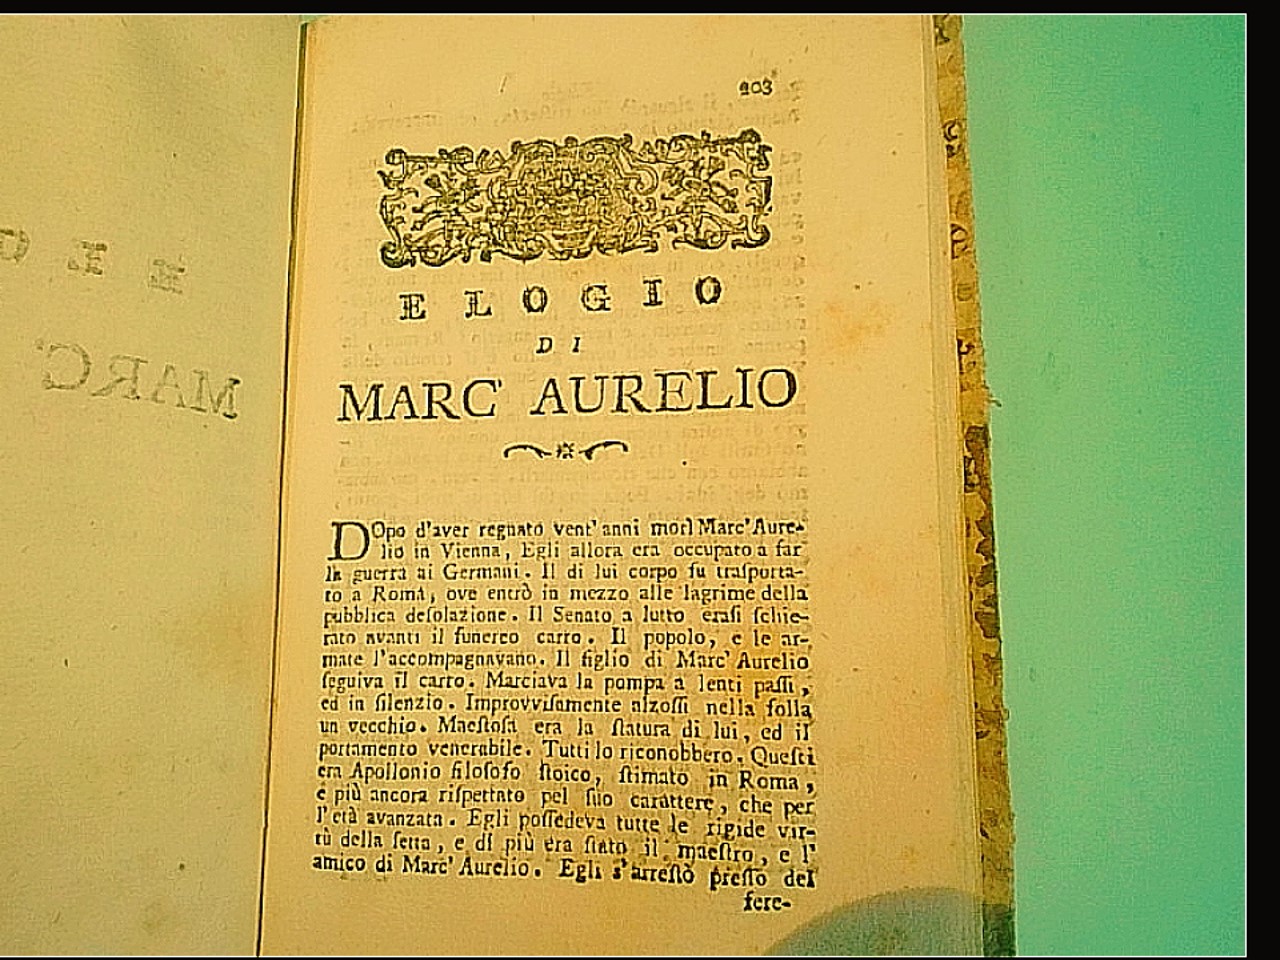 203
ELOGIO
DI
MARC' AURELIO
DOpo d'aver regnato vent' anni morì Marc' Aure-
lio in Vienna, Egli allora era occupato a far
la guerra ai Germani. Il di lui corpo fu trasporta-
to a Roma, ove entrò in mezzo alle lagrime della
pubblica desolazione. Il Senato a lutto erasi schie-
rato avanti il funereo carro. Il popolo, e le ar-
mate l'accompagnavano. Il figlio di Marc' Aurelio
seguiva il carro. Marciava la pompa a lenti passi,
ed in silenzio. Improvvisamente alzossi nella folla
un vecchio. Maestosa era la statura di lui, ed il
portamento venerabile. Tutti lo riconobbero. Questi
era Apollonio filosofo stoico, stimato in Roma,
e più ancora rispettato pel suo carattere, che per
l'età avanzata. Egli possedeva tutte le rigide vir-
tù della setta, e di più era stato il maestro, e l'
amico di Marc' Aurelio. Egli s'arrestò presso del
fere-